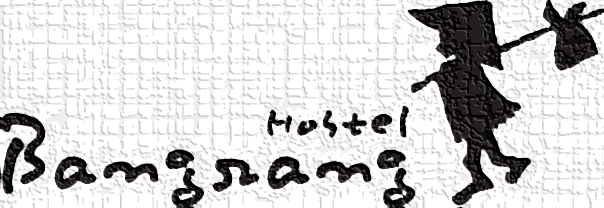 Hostel
Bangrang